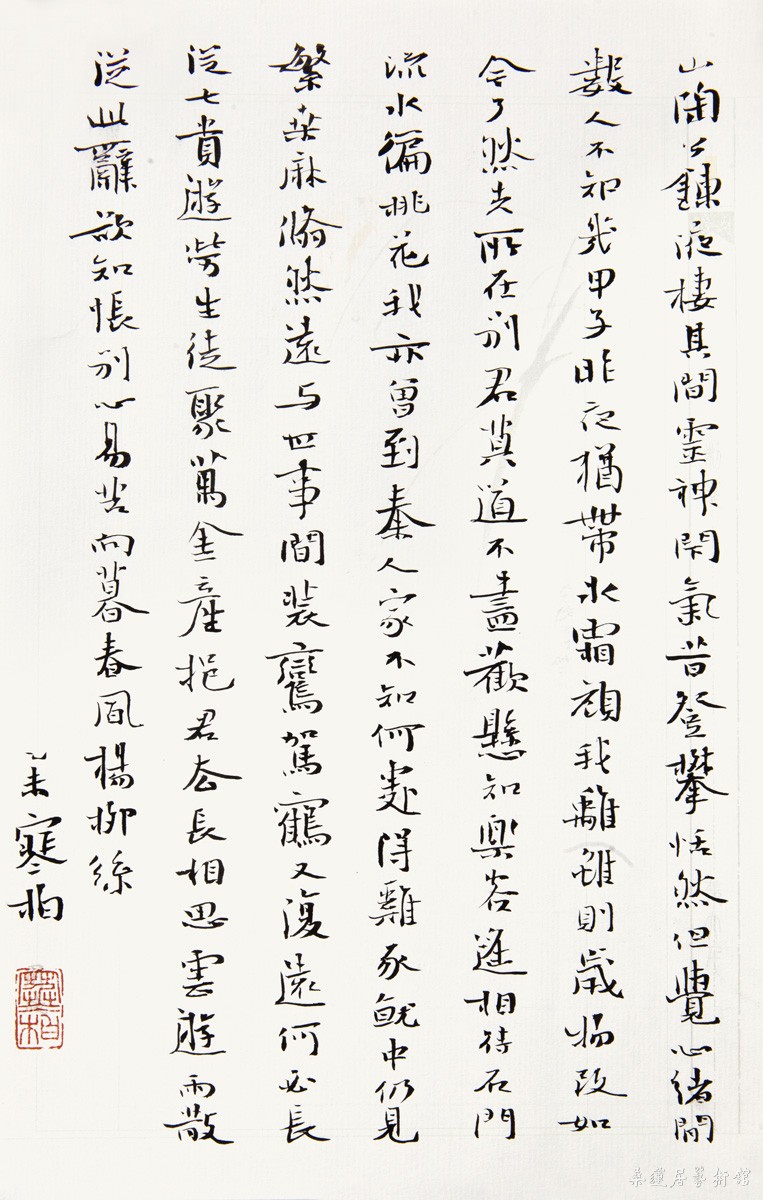 山陶公鍊液棲其間靈神閉氣昔登攀恬然但覺心緒閒
數人不知幾甲子昨夜猶帶冰霜顔我離雖則歲物改如
今了然失所在別君莫道不盡歡懸知樂客遥相待石門
流水徧桃花我亦曾到秦人家不知何處得雞豕就中仍見
繁桑麻翛然遠与世事間裝鸞駕鶴又復遠何必長
從七貴遊勞生徒聚萬金產挹君去長相思雲遊雨散
從此辭欲知悵別心易苦向暮春風楊柳絲
乙未寒柏
寒柏
桑蓮居藝術館